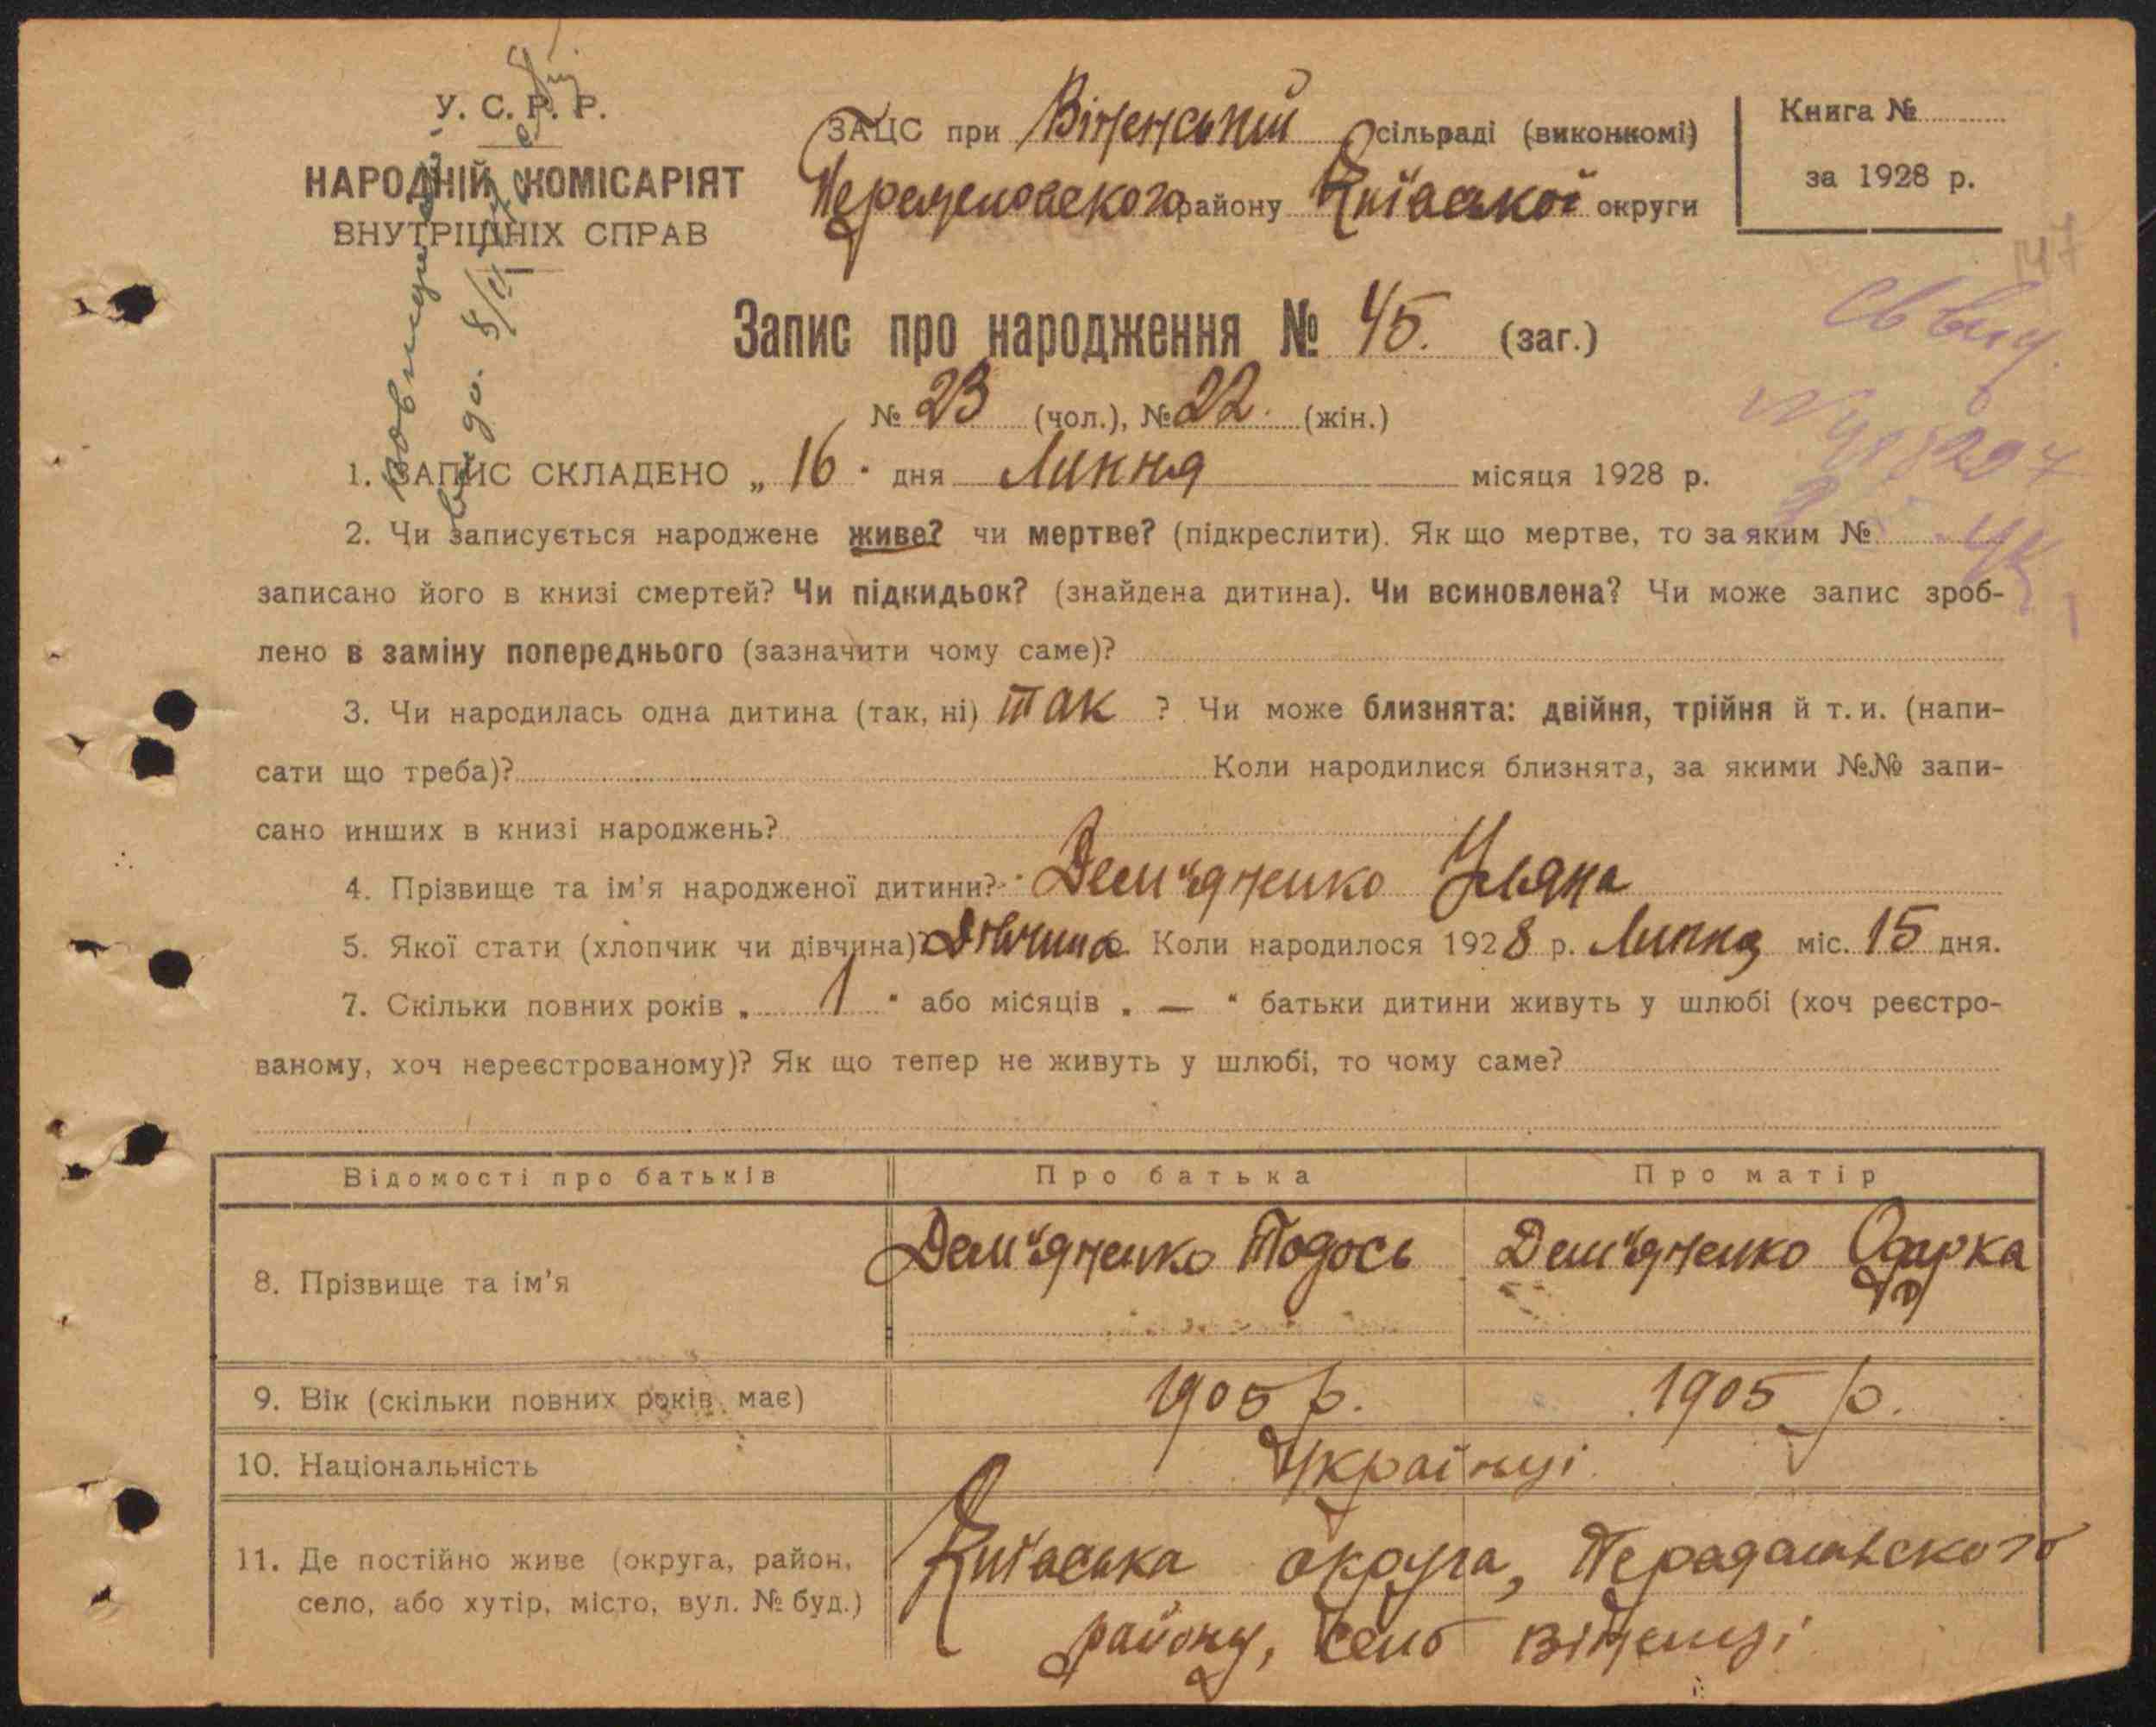 У. С. Р. Р.
НАРОДНІЙ КОМІСАРІЯТ
ВНУТРІШНІХ СПРАВ
ЗАЦС при Віненській сільраді (виконкомі)
району Київської округи
Книга №
за 1928 р.
147
Запис про народження № 45. (заг.)
№ 23 (чол.), № 22. (жін.)
1. ЗАПИС СКЛАДЕНО „ 16 " дня Липня місяця 1928 р.
2. Чи записується народжене живе? чи мертве? (підкреслити). Як що мертве, то за яким №
записано його в книзі смертей? Чи підкидьок? (знайдена дитина). Чи всиновлена? Чи може запис зроб-
лено в заміну попереднього (зазначити чому саме)?
3. Чи народилась одна дитина (так, ні) так ? Чи може близнята: двійня, трійня й т. и. (напи-
сати що треба)? Коли народилися близнята, за якими №№ запи-
сано инших в книзі народжень?
4. Прізвище та ім'я народженої дитини? Дем'яненко Уляна
5. Якої стати (хлопчик чи дівчина)? Дівчина Коли народилося 1928 р. Липня міс. 15 дня.
7. Скільки повних років „ 1 " або місяців „ — " батьки дитини живуть у шлюбі (хоч реєстро-
ваному, хоч нереєстрованому)? Як що тепер не живуть у шлюбі, то чому саме?
Відомості про батьків Про батька Про матір
8. Прізвище та ім'я Дем'яненко Тодось Дем'яненко Одарка
9. Вік (скільки повних років має) 1905 р. 1905 р.
10. Національність Українці
11. Де постійно живе (округа, район, Київська округа,
село, або хутір, місто, вул. № буд.) району, село Віненці